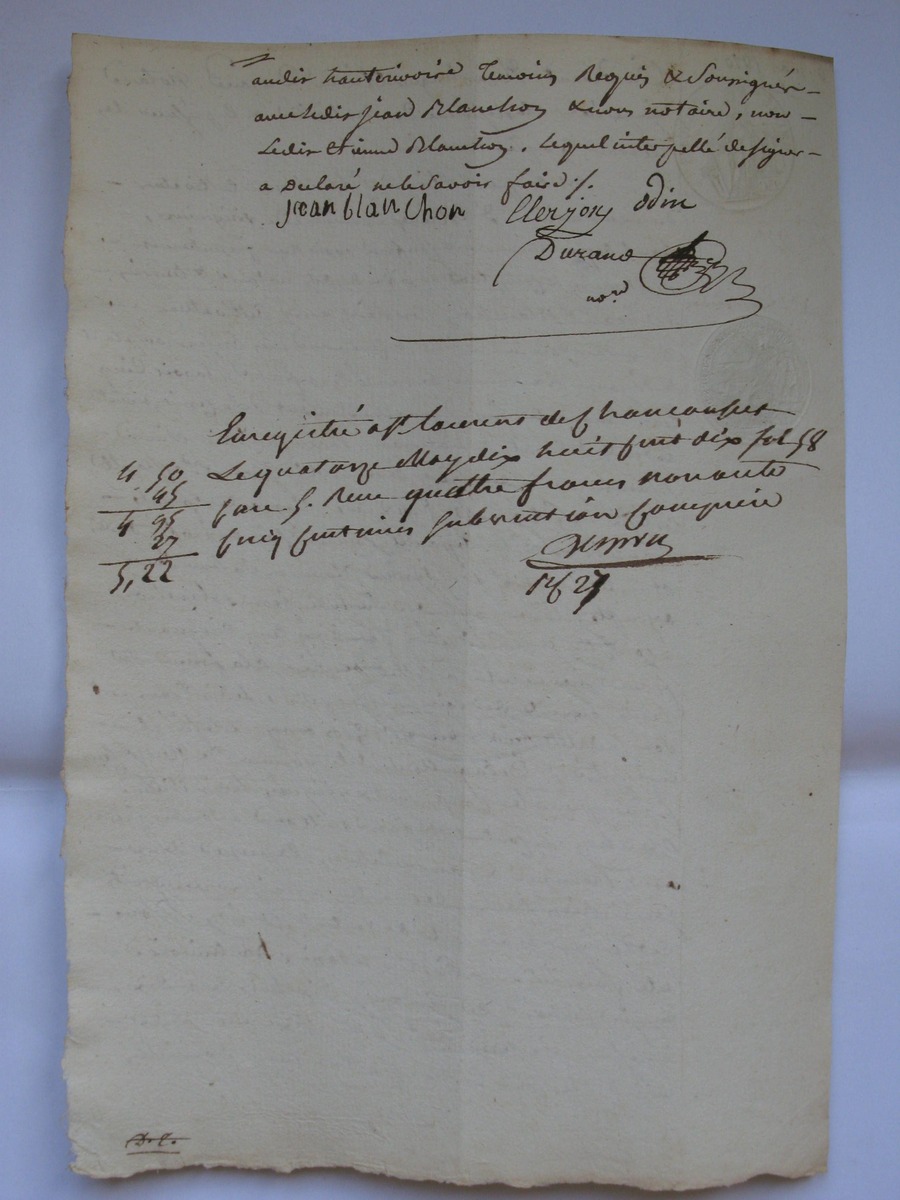 audit hauterivoire temoins Requis & Soussignés
avec ledit jean Blanchon & nous notaire, non
Ledit Etienne Blanchon, Lequel interpellé de signer
a Declaré ne le Savoir faire ./.
jean blanchon Clerjon odin
Durand
no.re
Enregistré a st laurent de Chamousset
Le quatorze May dix huit cent dix fol 58
4, 50
45
Case 5. Reçu quatre francs nonante
4 95
27
cinq centimes Subvention Comprise
5, 22
1827
D. C.